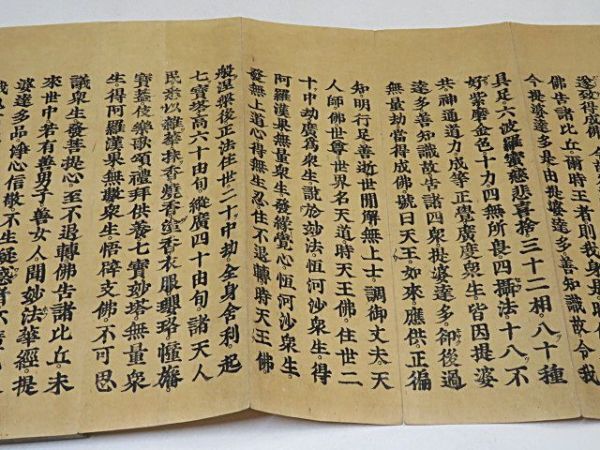 佛告諸比丘爾時王者則我身是時
今提婆達多是由提婆達多善知識故令我
具足六波羅蜜慈悲喜捨三十二相八十種
好紫磨金色十力四無所畏四攝法十八不
共神通道力成等正覺廣度衆生皆因提婆
達多善知識故告諸四衆提婆達多却後過
無量劫當得成佛號曰天王如來應供正徧
知明行足善逝世間解無上士調御丈夫天
人師佛世尊世界名天道時天王佛住世二
十中劫廣爲衆生說於妙法恒河沙衆生得
阿羅漢果無量衆生發緣覺心恒河沙衆生
發無上道心得無生忍住不退轉時天王佛
般涅槃後正法住世二十中劫全身舍利起
七寶塔高六十由旬縱廣四十由旬諸天人
民悉以雜華抹香燒香塗香衣服瓔珞幢旛
寶蓋伎樂歌頌禮拜供養七寶妙塔無量衆
生得阿羅漢果無數衆生悟辟支佛不可思
議衆生發菩提心至不退轉佛告諸比丘未
來世中若有善男子善女人聞妙法華經提
婆達多品淨心信敬不生疑惑者不